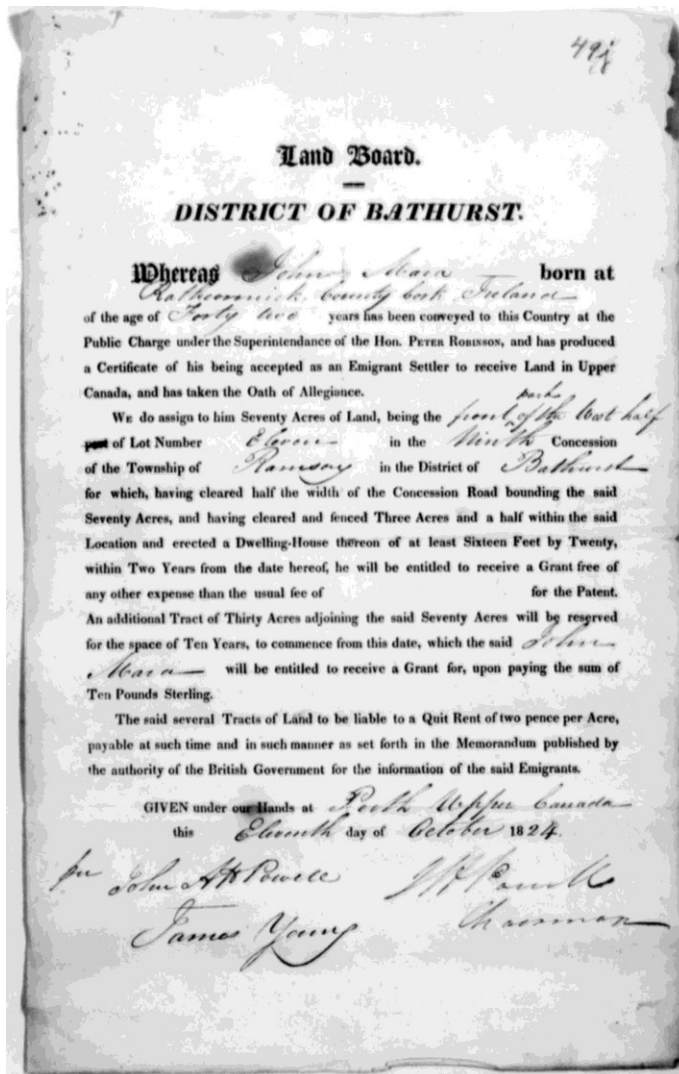 49
Land Board.
DISTRICT OF BATHURST.
Whereas John Mara born at
Rathcormick County Cork Ireland
of the age of Forty two years has been conveyed to this Country at the
Public Charge under the Superintendance of the Hon. PETER ROBINSON, and has produced
a Certificate of his being accepted as an Emigrant Settler to receive Land in Upper
Canada, and has taken the Oath of Allegiance.
WE do assign to him Seventy Acres of Land, being the front part of the West half
part of Lot Number Eleven in the Ninth Concession
of the Township of Ramsay in the District of Bathurst
for which, having cleared half the width of the Concession Road bounding the said
Seventy Acres, and having cleared and fenced Three Acres and a half within the said
Location and erected a Dwelling-House thereon of at least Sixteen Feet by Twenty,
within Two Years from the date hereof, he will be entitled to receive a Grant free of
any other expense than the usual fee of for the Patent.
An additional Tract of Thirty Acres adjoining the said Seventy Acres will be reserved
for the space of Ten Years, to commence from this date, which the said John
Mara will be entitled to receive a Grant for, upon paying the sum of
Ten Pounds Sterling.
The said several Tracts of Land to be liable to a Quit Rent of two pence per Acre,
payable at such time and in such manner as set forth in the Memorandum published by
the authority of the British Government for the information of the said Emigrants.
GIVEN under our Hands at Perth Upper Canada
this Eleventh day of October 1824.
John A H Powell
J H Powell
James Young
Chairman